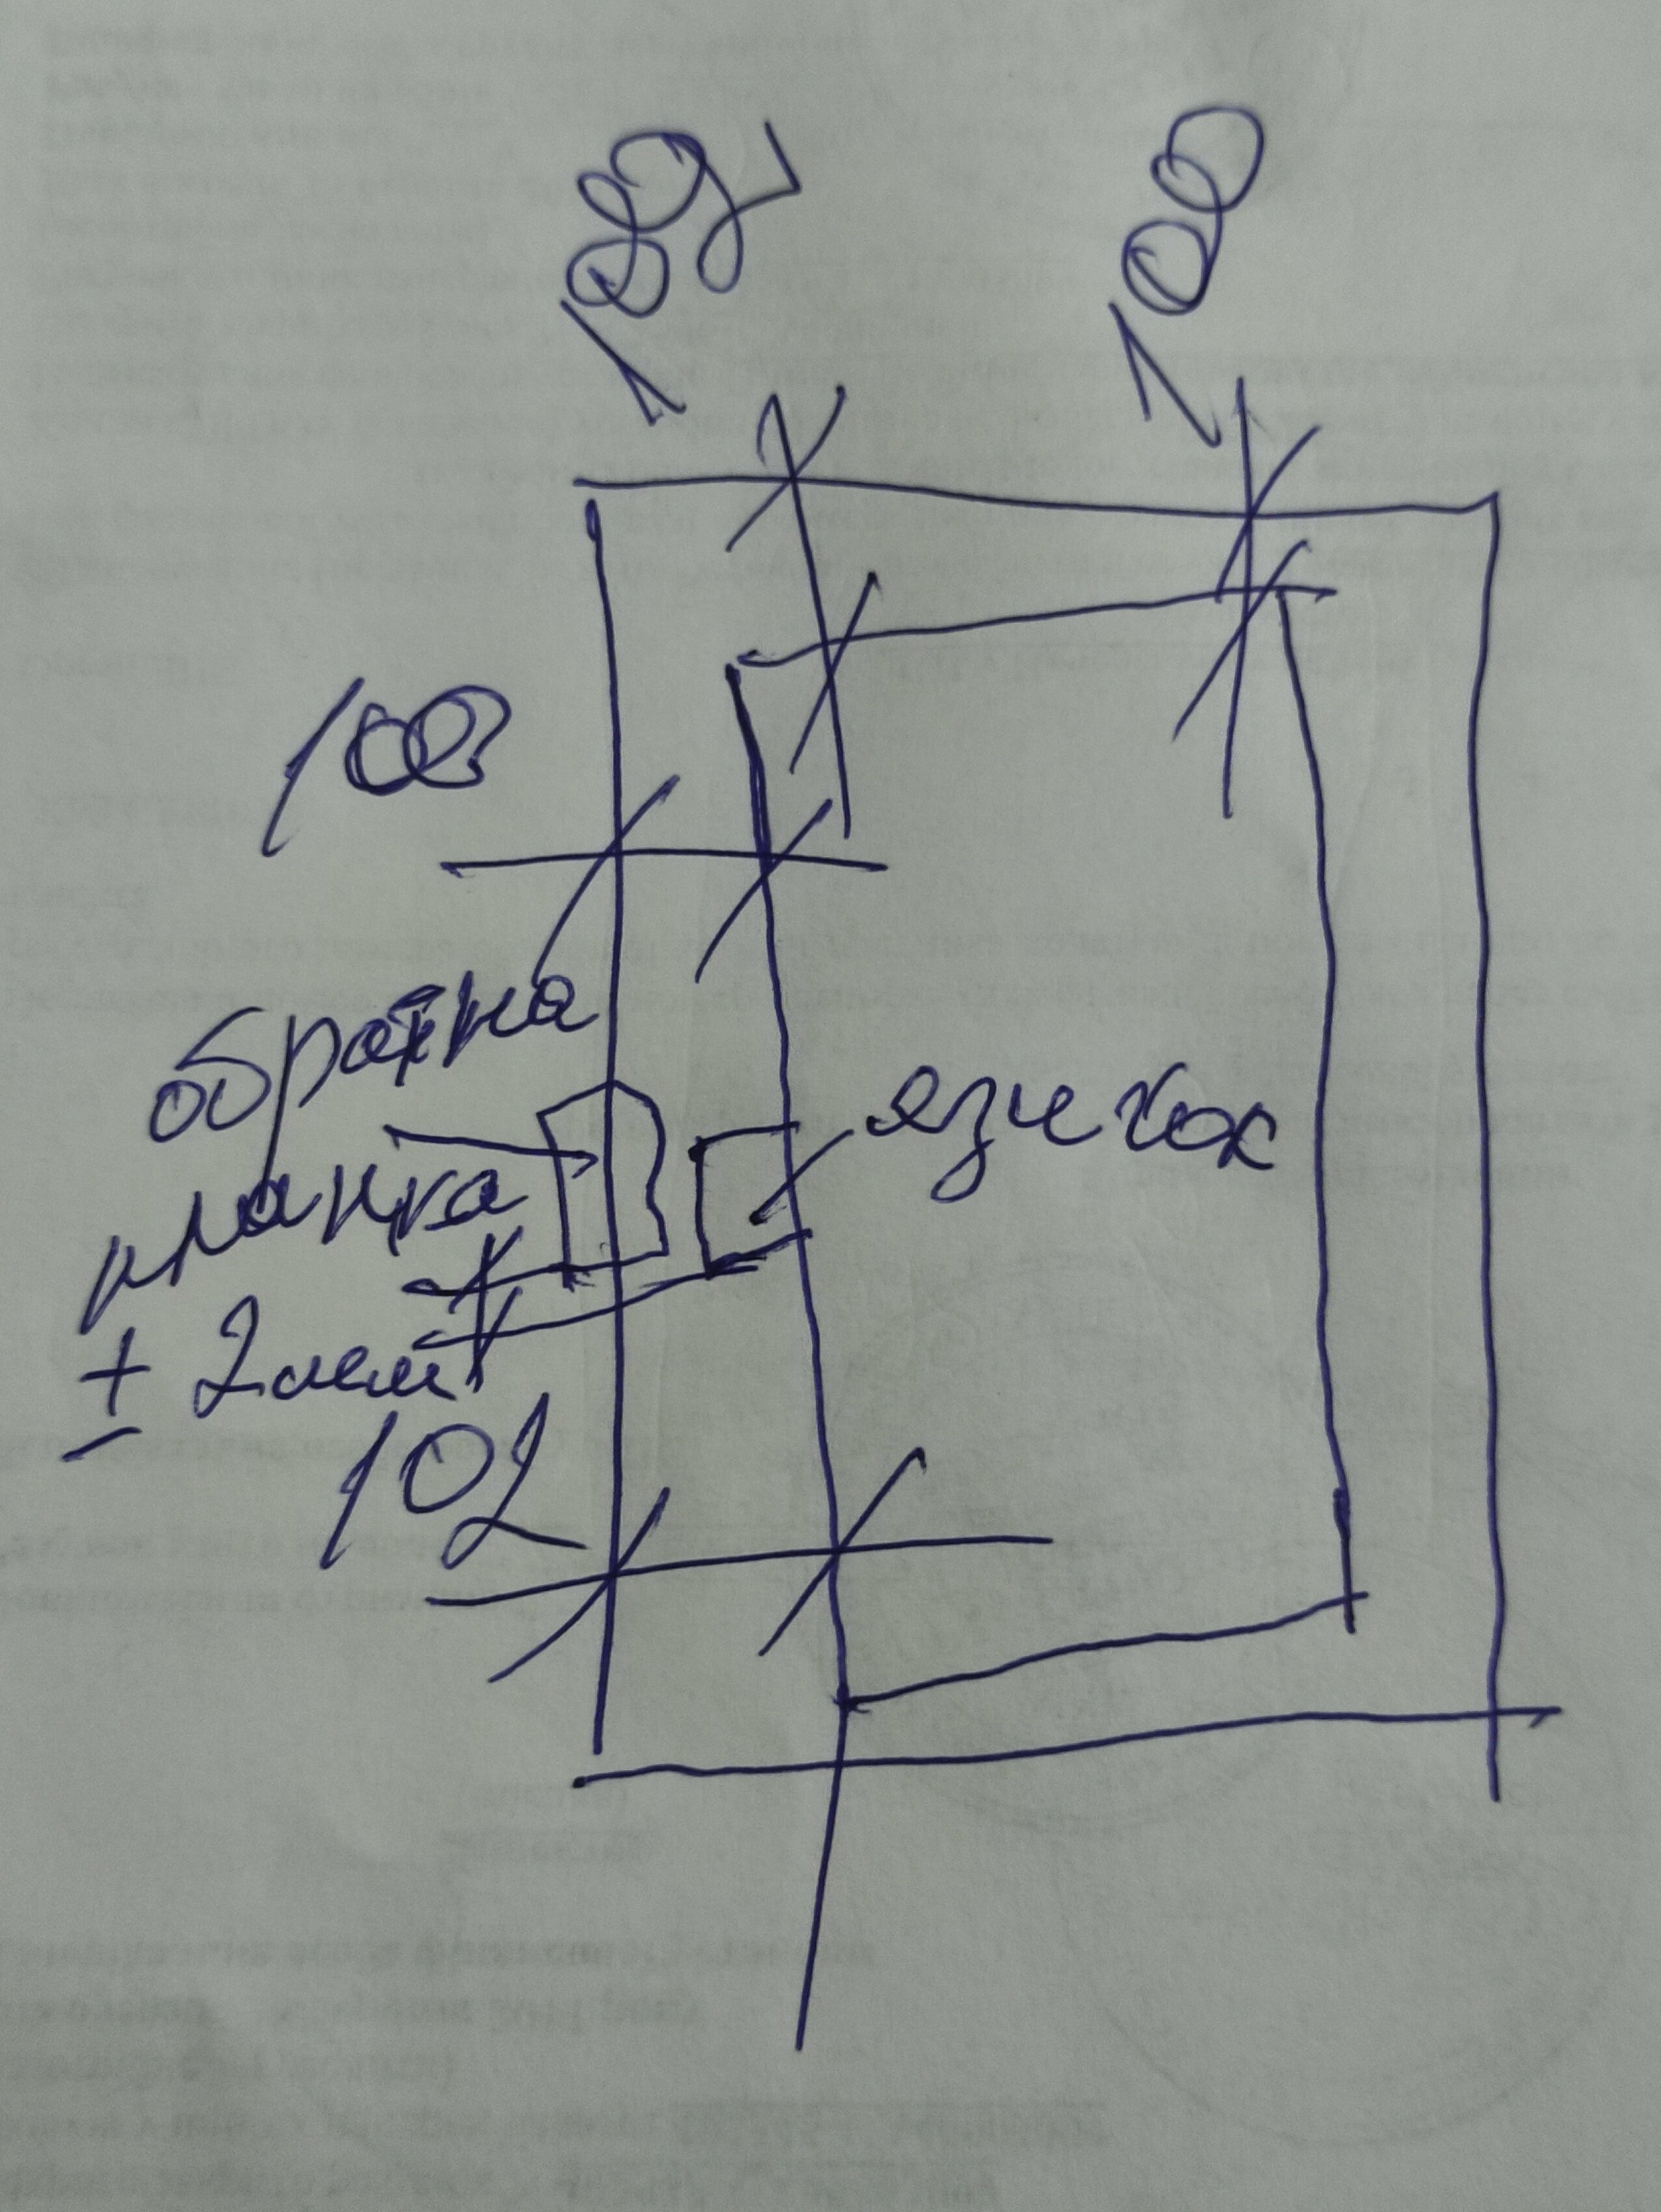 100
100
обратна
планка
язичок
± 2мм
102